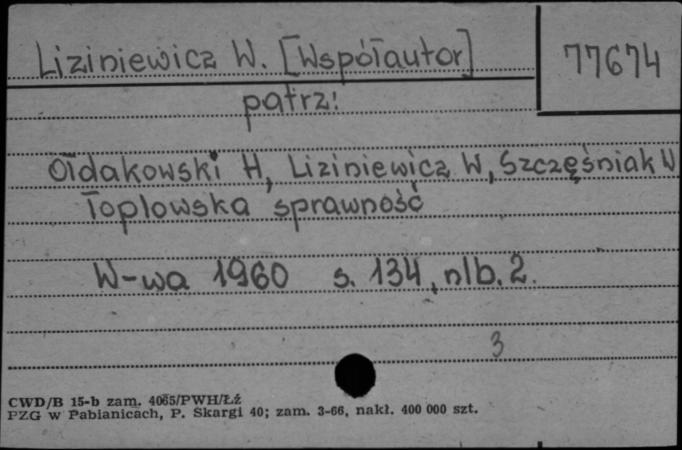 Liziniewicz W. [Współautor]
77674
patrz:
Ołdakowski H, Liziniewicz W, Szczęśniak W
Toplowska sprawność
W-wa 1960 s. 134, nlb. 2.
3
CWD/B 15-b zam. 4065/PWH/Łź
PZG w Pabianicach, P. Skargi 40; zam. 3-66, nakł. 400 000 szt.